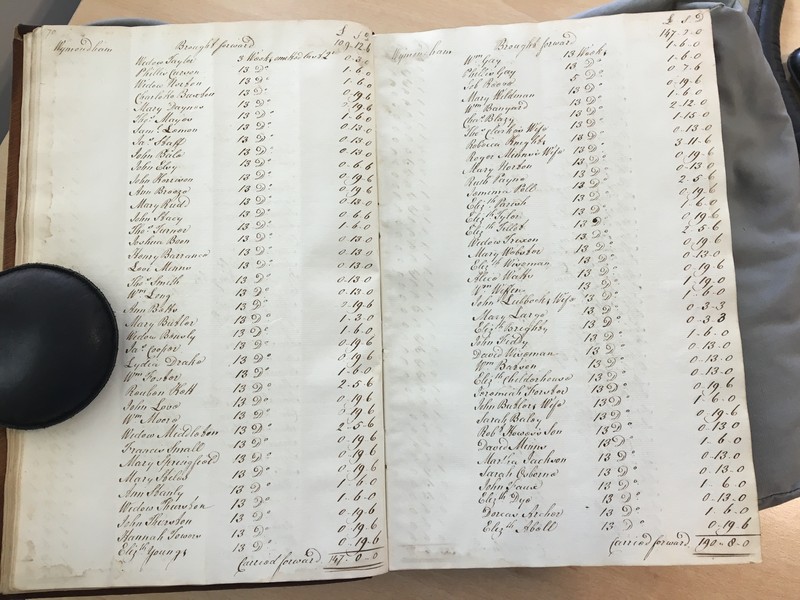 Wymondham Brought forward £ s d 109-12-6
Widow Taylor 3 Weeks omitted last Qr 0-3-0
Philler Carson 13 Do 1-6-0
Widow Horton 13 Do 1-6-0
Charlotte Buxton 13 Do 0-19-6
Mary Daynes 13 Do 0-19-6
Thos. Mayes 13 Do 1-6-0
Saml. Lemon 13 Do 0-13-0
Jas. Staff 13 Do 0-13-0
John Bale 13 Do 0-13-0
John Eloy 13 Do 0-6-6
John Harrison 13 Do 0-19-6
Ann Breeze 13 Do 0-19-6
Mary Rudd 13 Do 0-13-0
John Stacy 13 Do 0-6-6
Thos. Turner 13 Do 1-6-0
Joshua Been 13 Do 0-13-0
Henry Barrance 13 Do 0-13-0
Levi Minns 13 Do 0-13-0
Thos. Smith 13 Do 0-13-0
Wm. Long 13 Do 0-13-0
Ann Betts 13 Do 0-19-6
Mary Butler 13 Do 1-3-0
Widow Bensly 13 Do 1-6-0
Jas. Cooper 13 Do 0-19-6
Lydia Drake 13 Do 0-19-6
Wm. Foster 13 Do 1-6-0
Reuben Hall 13 Do 2-5-6
John Love 13 Do 0-19-6
Wm. Moore 13 Do 0-19-6
Widow Middleton 13 Do 2-5-6
Frances Small 13 Do 0-19-6
Mary Springfield 13 Do 0-19-6
Mary Steles 13 Do 0-19-6
Ann Stanly 13 Do 1-6-0
Widow Thurston 13 Do 1-6-0
John Thurston 13 Do 0-19-6
Hannah Towers 13 Do 0-19-6
Elizth. Youngs 13 Do 0-19-6
Carried forward 147-0-0
Wymondham Brought forward £ s d 147-0-0
Wm. Gay 13 Weeks 1-6-0
Philler Gay 13 Do 1-6-0
Job Reeve 5 Do 0-7-6
Mary Wildman 13 Do 0-19-6
Wm. Banyard 13 Do 1-6-0
Chas. Blazy 13 Do 2-12-0
Thos. Clarkes Wife 13 Do 1-15-0
Rebecca Knights 13 Do 0-13-0
Roger Minns's Wife 13 Do 3-11-6
Mary Horton 13 Do 0-19-6
Ruth Payne 13 Do 0-13-0
Jemima Pell 13 Do 2-5-6
Elizth. Parish 13 Do 0-19-6
Elizth. Tyler 13 Do 1-6-0
Elizth. Tillet 13 Do 0-19-6
Widow Frexon 13 Do 2-5-6
Mary Webster 13 Do 0-19-6
Elizth. Wiseman 13 Do 0-13-0
Alice Watts 13 Do 0-19-6
Wm. Wiken 13 Do 1-19-0
John Lubbock's Wife 13 Do 1-6-0
Mary Large 13 Do 0-3-3
Elizth. Breghty 13 Do 0-3-3
John Fiddy 13 Do 1-6-0
David Wiseman 13 Do 0-13-0
Wm. Batson 13 Do 0-13-0
Elizth. Childerhouse 13 Do 0-13-0
Jeremiah Forster 13 Do 0-19-6
John Butlers Wife 13 Do 1-6-0
Sarah Baley 13 Do 0-19-6
Robt. Howes's Son 13 Do 0-13-0
David Minns 13 Do 1-6-0
Martha Jackson 13 Do 0-13-0
Sarah Osborne 13 Do 0-13-0
John Fause 13 Do 1-6-0
Elizth. Dye 13 Do 0-13-0
Dorcas Archer 13 Do 1-6-0
Elizth. Abell 13 Do 0-19-6
Carried forward 190-8-0